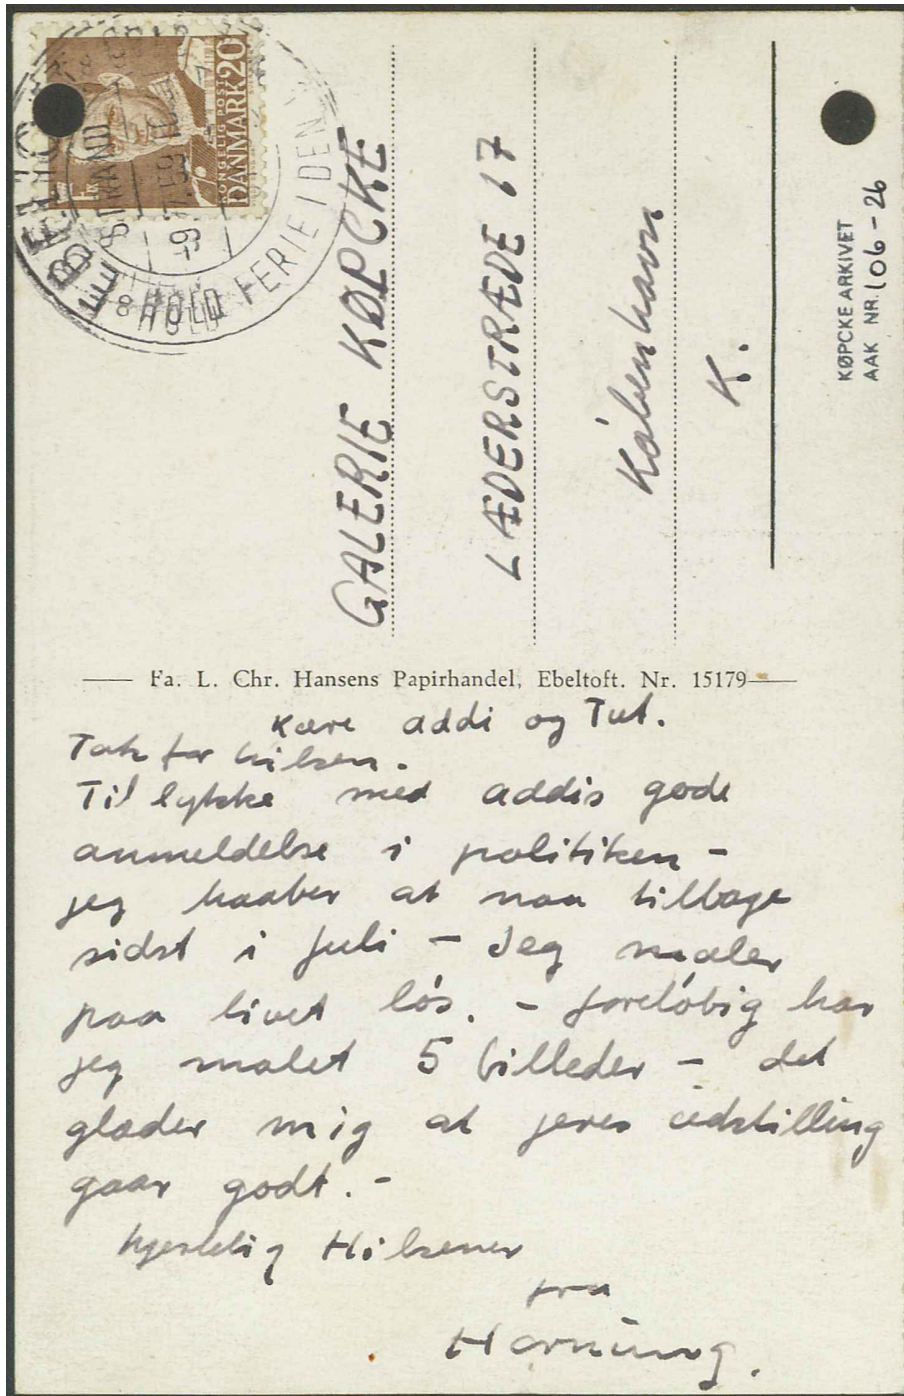 DANMARK 20
HOLD FERIE I DEN
GALERIE KØPCKE
LÆDERSTRÆDE 17
København
K.
KØPCKE ARKIVET
AAK NR. 106-26
Fa. L. Chr. Hansens Papirhandel, Ebeltoft. Nr. 15179
Kære addi og Tut.
Tak for hilsen.
Til lykke med addis gode
anmeldelse i politiken -
jeg haaber at naa tilbage
sidst i juli - Jeg maler
paa livet løs. - foreløbig har
jeg malet 5 billeder - det
glæder mig at jeres udstilling
gaar godt. -
hjertelig Hilsener
fra
Hornung.